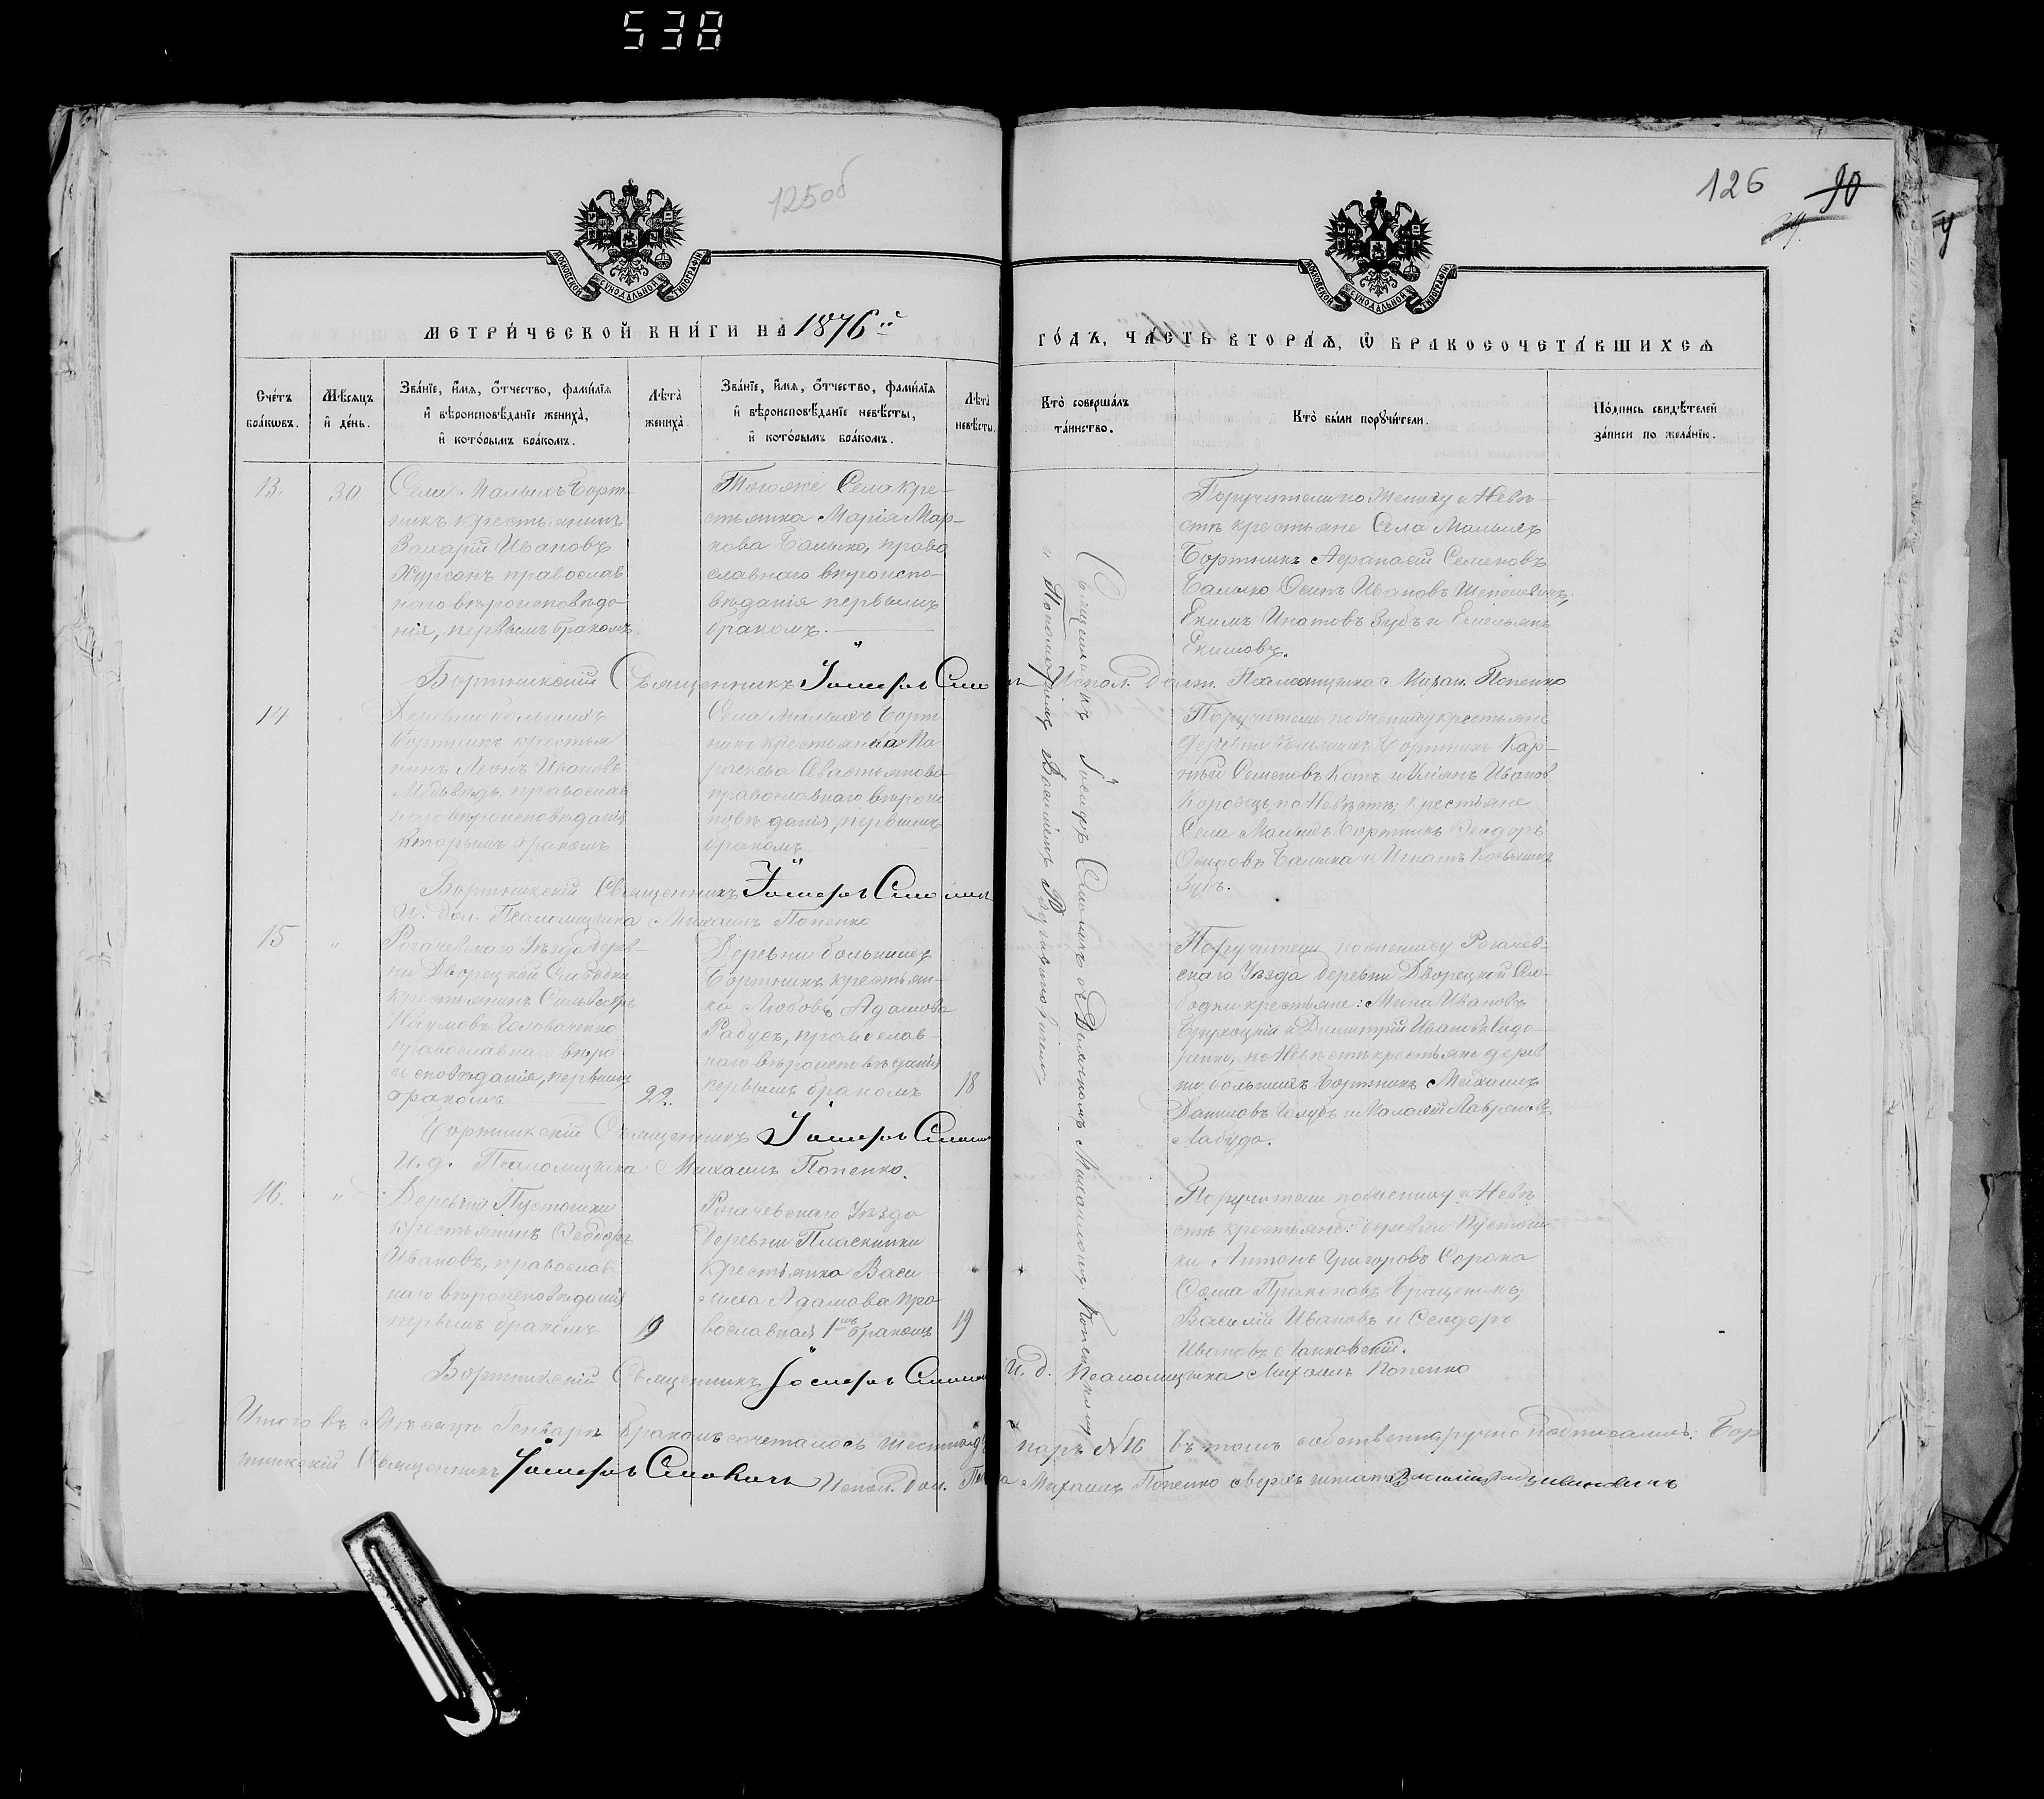 538
125об
126 90
39.
МОСКОВСКОЙ СѴНОДАЛЬНОЙ ТИПОГРАФІИ
МОСКОВСКОЙ СѴНОДАЛЬНОЙ ТИПОГРАФІИ
МЕТРИ́ЧЕСКОЙ КНИ́ГИ НА 1876й
ГО́ДЪ, ЧА́СТЬ ВТОРА́Ѧ, Ѡ БРАКОСОЧЕТА́ВШИХСѦ
Сче́тъ бра́кѡвъ.
Мѣ́сяцъ и де́нь.
Зва́нїе, и́мѧ, о́тчество, фами́лїѧ и вѣроисповѣ́данїе жениха̀, и кото́рымъ бра́комъ.
Лѣ́та жениха̀.
Зва́нїе, и́мѧ, о́тчество, фами́лїѧ и вѣроисповѣ́данїе невѣ́сты, и кото́рымъ бра́комъ.
Лѣ́та невѣ́сты.
Кто̀ соверша́лъ та́инство.
Кто̀ бы́ли порꙋчи́тели.
По́дпись свидѣ́телей за́писи по жела́нїю.
13.
30
Села Малыхъ Борт-
никъ крестьянинъ
Захарій Ивановъ
Хурсанъ православ
наго вѣроисповѣда
нія, первымъ бракомъ
Тогоже Села кре-
стьянка Марія Мар-
кова Балыко, право
славнаго вѣроиспо-
вѣданія первымъ
бракомъ.
Священникъ Іосифъ Смоличъ съ Дьячкомъ Михаиломъ Попенкомъ
и Пономаремъ Василіемъ
Поручители по Жениху и Невѣ-
стѣ крестьяне Села Малыхъ
Бортникъ Афанасій Семеновъ
Балыко Осипъ Ивановъ
Екимъ Ипатовъ Зубъ и Емельянъ
Екимовъ.
Бортникскій Священникъ Іосифъ Смоличъ Испол. долж. Псаломщика Михаи. Попенко
14
Деревни большихъ
Бортникъ крестья
нинъ Леонъ Ивановъ
Медвѣдь, православ
наго вѣроисповѣданія
вторымъ бракомъ
Села Малыхъ Борт
никъ крестьянка Па
раскева Севастьянова
православнаго вѣрои
повѣданія, первымъ
бракомъ
Поручители по жениху крестьяне
деревни большихъ Бортникъ Кар-
нѣй Семеновъ Котъ и Уліянъ Иванов
по Невѣстѣ, крестьяне
Села Малыхъ Бортникъ Ѳеодоръ
Осиповъ Балыка и Игнатъ
Зубъ.
Бортникскій Священникъ Іосифъ Смоличъ
И. дол. Псаломщика Михаилъ Попенко
15
"
Рогачевскаго Уѣзда дерев-
ни Дворецкой Слободки
крестьянинъ Сильвестръ
Наумовъ Головаченко
православнаго вѣро
исповѣданія, первымъ
бракомъ
22.
Деревни большихъ
Бортникъ крестьян-
ка Любовь Адамова
Радусъ, православ-
наго вѣроисповѣданія
первымъ бракомъ
18
Поручители по жениху Рогачев-
скаго Уѣзда деревни Дворецкой Сло-
бодки крестьяне: Мина Ивановъ
и Димитрій Ивановъ Сидо-
ренко, по Невѣстѣ крестьяне дерев
ни большихъ Бортникъ Михаилъ
Даниловъ Голубъ и Малафій Лавреновъ
Лабуда.
Бортникскій Священникъ Іосифъ Смоличъ
И. д. Псаломщика Михаилъ Попенко.
16.
"
Деревни Пустошки
крестьянинъ Ѳеодоръ
Ивановъ, православ
наго вѣроисповѣданія
первымъ бракомъ
19
Рогачевскаго Уѣзда
деревни Пласкинки
крестьянка Васи
лиса Адамова пра
вославная 1мъ бракомъ
19
Поручители по жениху и Невѣ
стѣ крестьяне: деревни Пустош
ки Антонъ Григоровъ Сорока
Ѳома Прокоповъ
Василій Ивановъ и Ѳеодоръ
Ивановъ Янковскій.
Бортникскій Священникъ Іосифъ Смоличъ И. д. Псаломщика Михаилъ Попенко
Итого въ Мѣсяцѣ Генварѣ бракомъ сочеталось шестнадц паръ №16 въ томъ собственноручно подписались: Бор
тникскій Священникъ Іосифъ Смоличъ Испол. дол. Михаилъ Попенко сверхъ штатн Василій